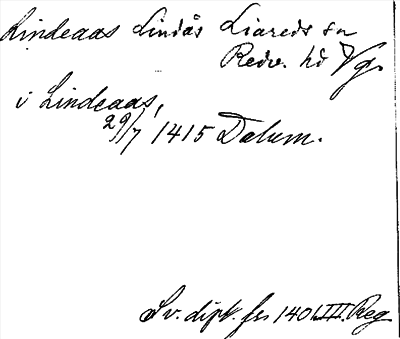 Lindeaas Lindås Liareds sn
Redv. hd Vg.
i Lindeaas,
29/7 1415 Datum.
Sv. dipl. frs 1401 III. Reg